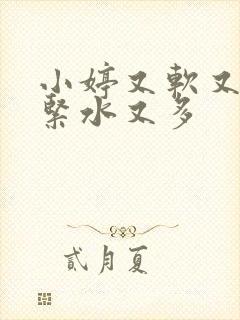 小婷又軟又
緊水又多
貳月夏